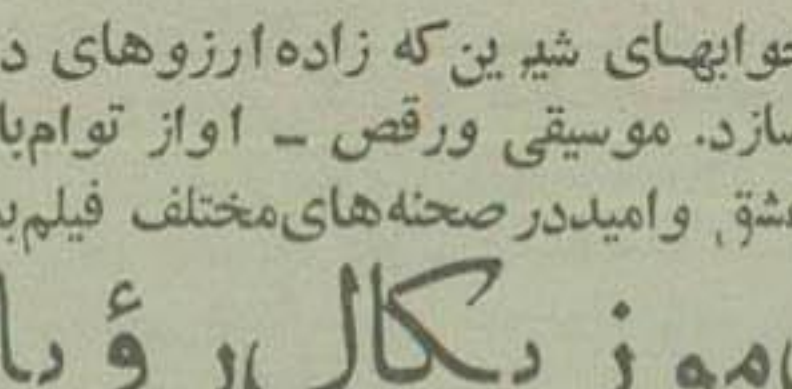 خوابهای شیرین که زاده ارزوهای
سازد. موسیقی ورقص ـ اواز توام با
عشق وامیددر صحنه های مختلف فیلم
موزیکال رؤیا